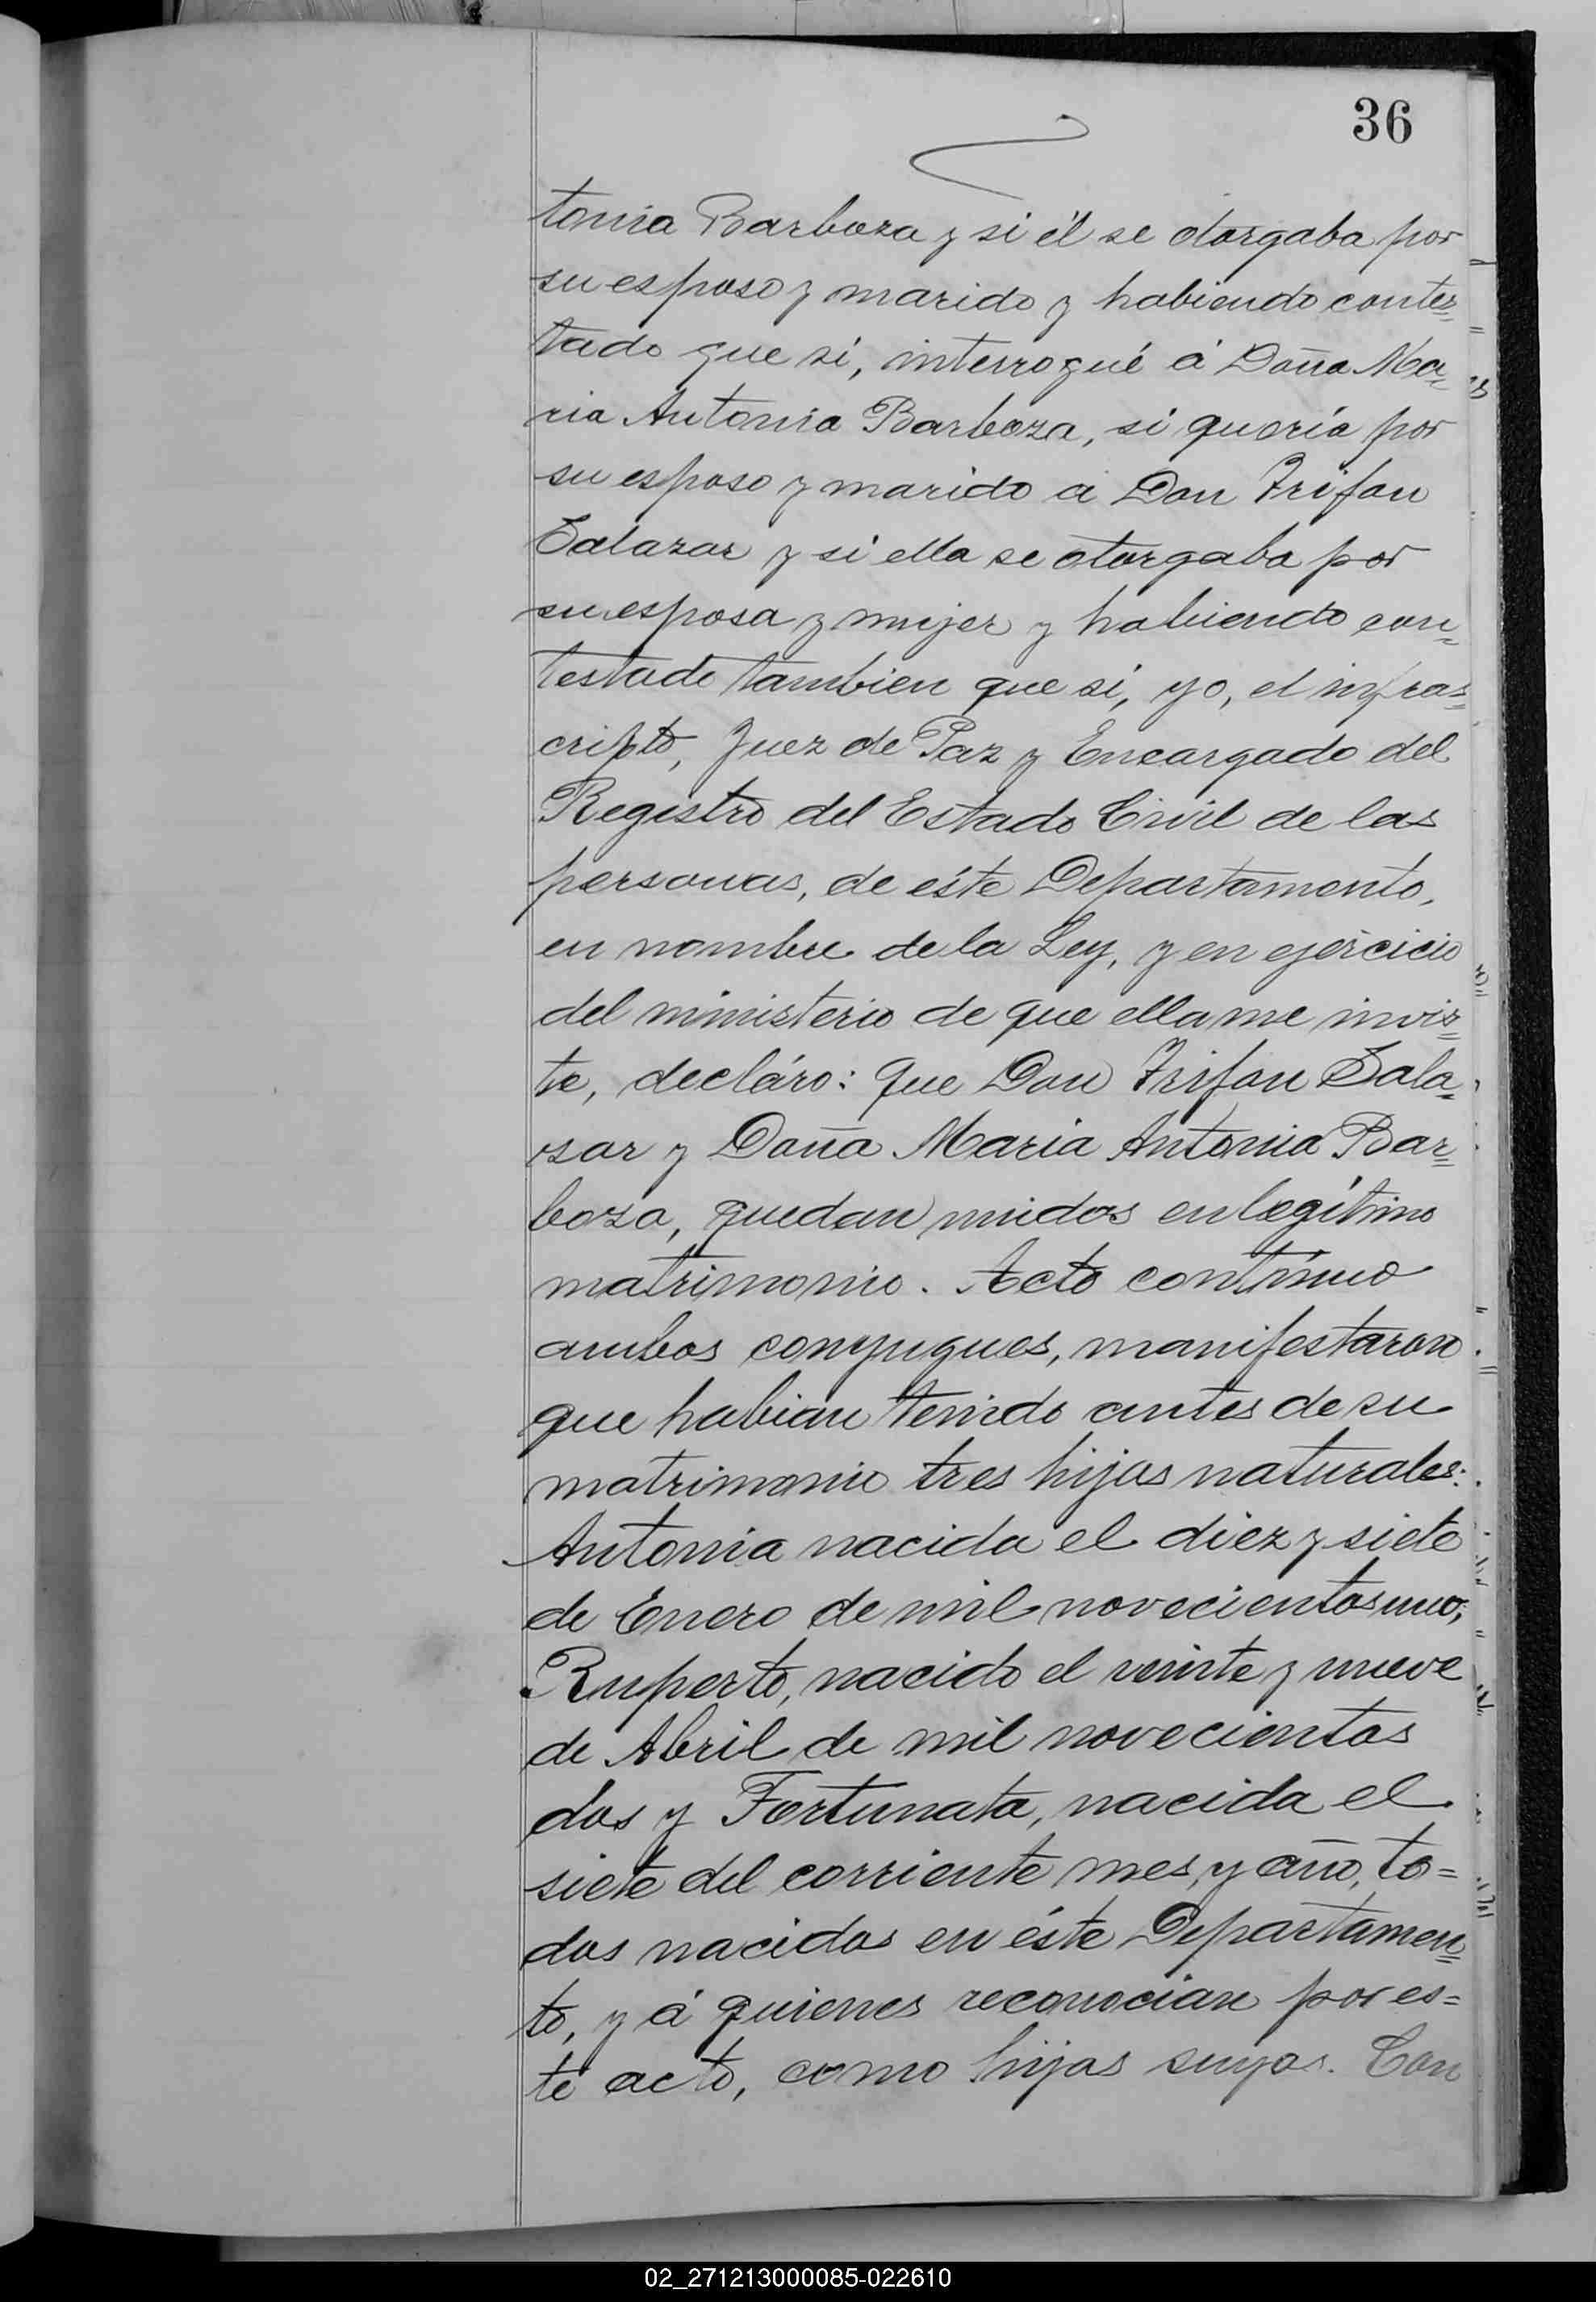 36
tonia Barboza y si él se otorgaba por
su esposo y marido y habiendo contes=
tado que si, interrogué á Doña Ma=
ria Antonia Barboza, si queria por
su esposo y marido á Don Trifon
Salazar y si ella se otorgaba por
su esposa y mujer y habiendo con=
testado tambien que si, yo, el infras=
cripto, Juez de Paz y Encargado del
Registro del Estado Civil de las
personas, de éste Departamento,
en nombre de la Ley, y en ejercicio
del ministerio de que ella me invis=
te, decláro: que Don Trifon Sala=
sar y Doña Maria Antonia Bar=
boza, quedan unidos en legítimo
matrimonio. Acto contínuo
ambos conyugues, manifestaron
que habian tenido antes de su
matrimonio tres hijos naturales:
Antonia nacida el diez y siete
de Enero de mil novecientos uno;
Ruperto, nacido el veinte y nueve
de Abril de mil novecientos
dos y Fortunata, nacida el
siete del corriente mes y año, to=
dos nacidos en éste Departamen=
to, y á quienes reconocian por es=
te acto, como hijos suyos. Con
02_271213000085-022610